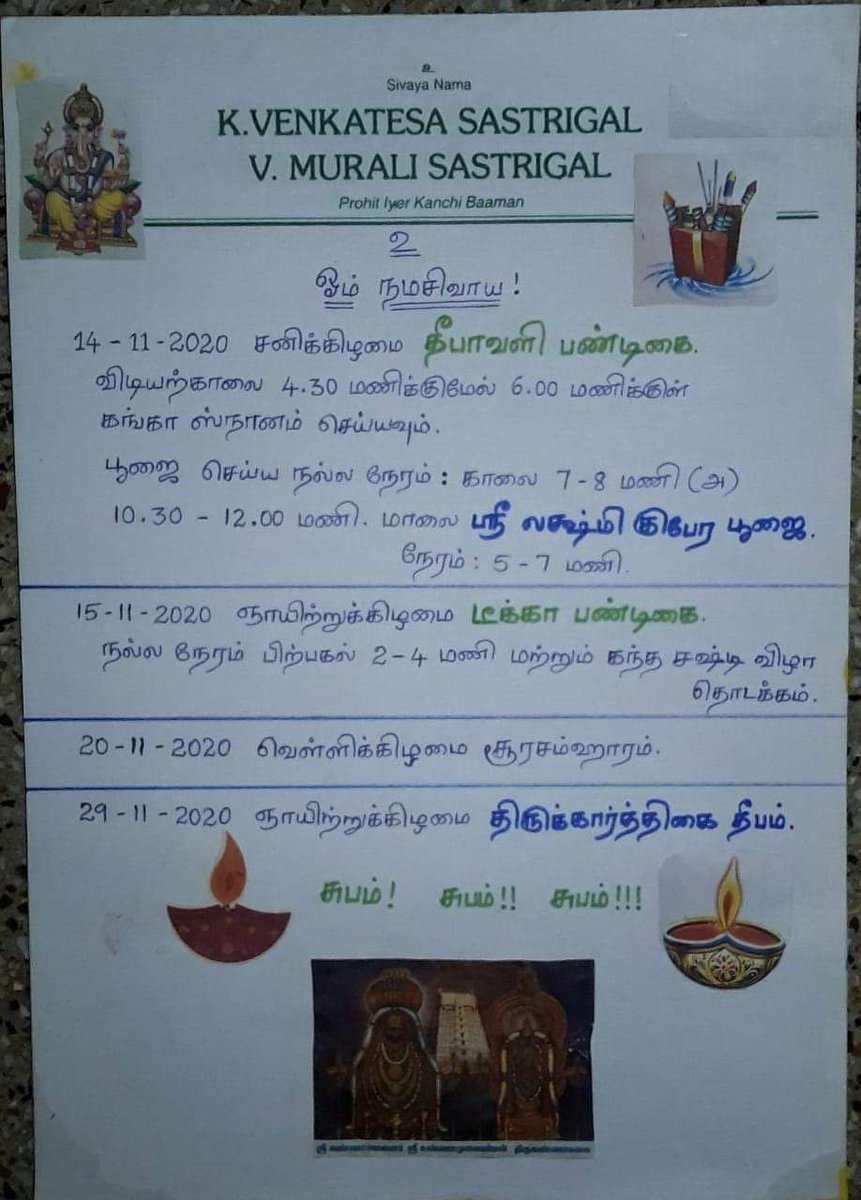 உ
Sivaya Nama
K.VENKATESA SASTRIGAL
V. MURALI SASTRIGAL
Prohit Iyer Kanchi Baaman
உ
ஓம் நமசிவாய !
14-11-2020 சனிக்கிழமை தீபாவளி பண்டிகை.
விடியற்காலை 4.30 மணிக்குமேல் 6.00 மணிக்குள்
கங்கா ஸ்நானம் செய்யவும்.
பூஜை செய்ய நல்ல நேரம் : காலை 7-8 மணி (அ)
10.30 - 12.00 மணி. மாலை ஸ்ரீ லக்ஷ்மி குபேர பூஜை.
நேரம் : 5-7 மணி.
15-11-2020 ஞாயிற்றுக்கிழமை டீக்கா பண்டிகை.
நல்ல நேரம் பிற்பகல் 2-4 மணி மற்றும் கந்த சஷ்டி விழா
தொடக்கம்.
20-11-2020 வெள்ளிக்கிழமை சூரசம்ஹாரம்.
29-11-2020 ஞாயிற்றுக்கிழமை திருக்கார்த்திகை தீபம்.
சுபம்! சுபம்!! சுபம்!!!